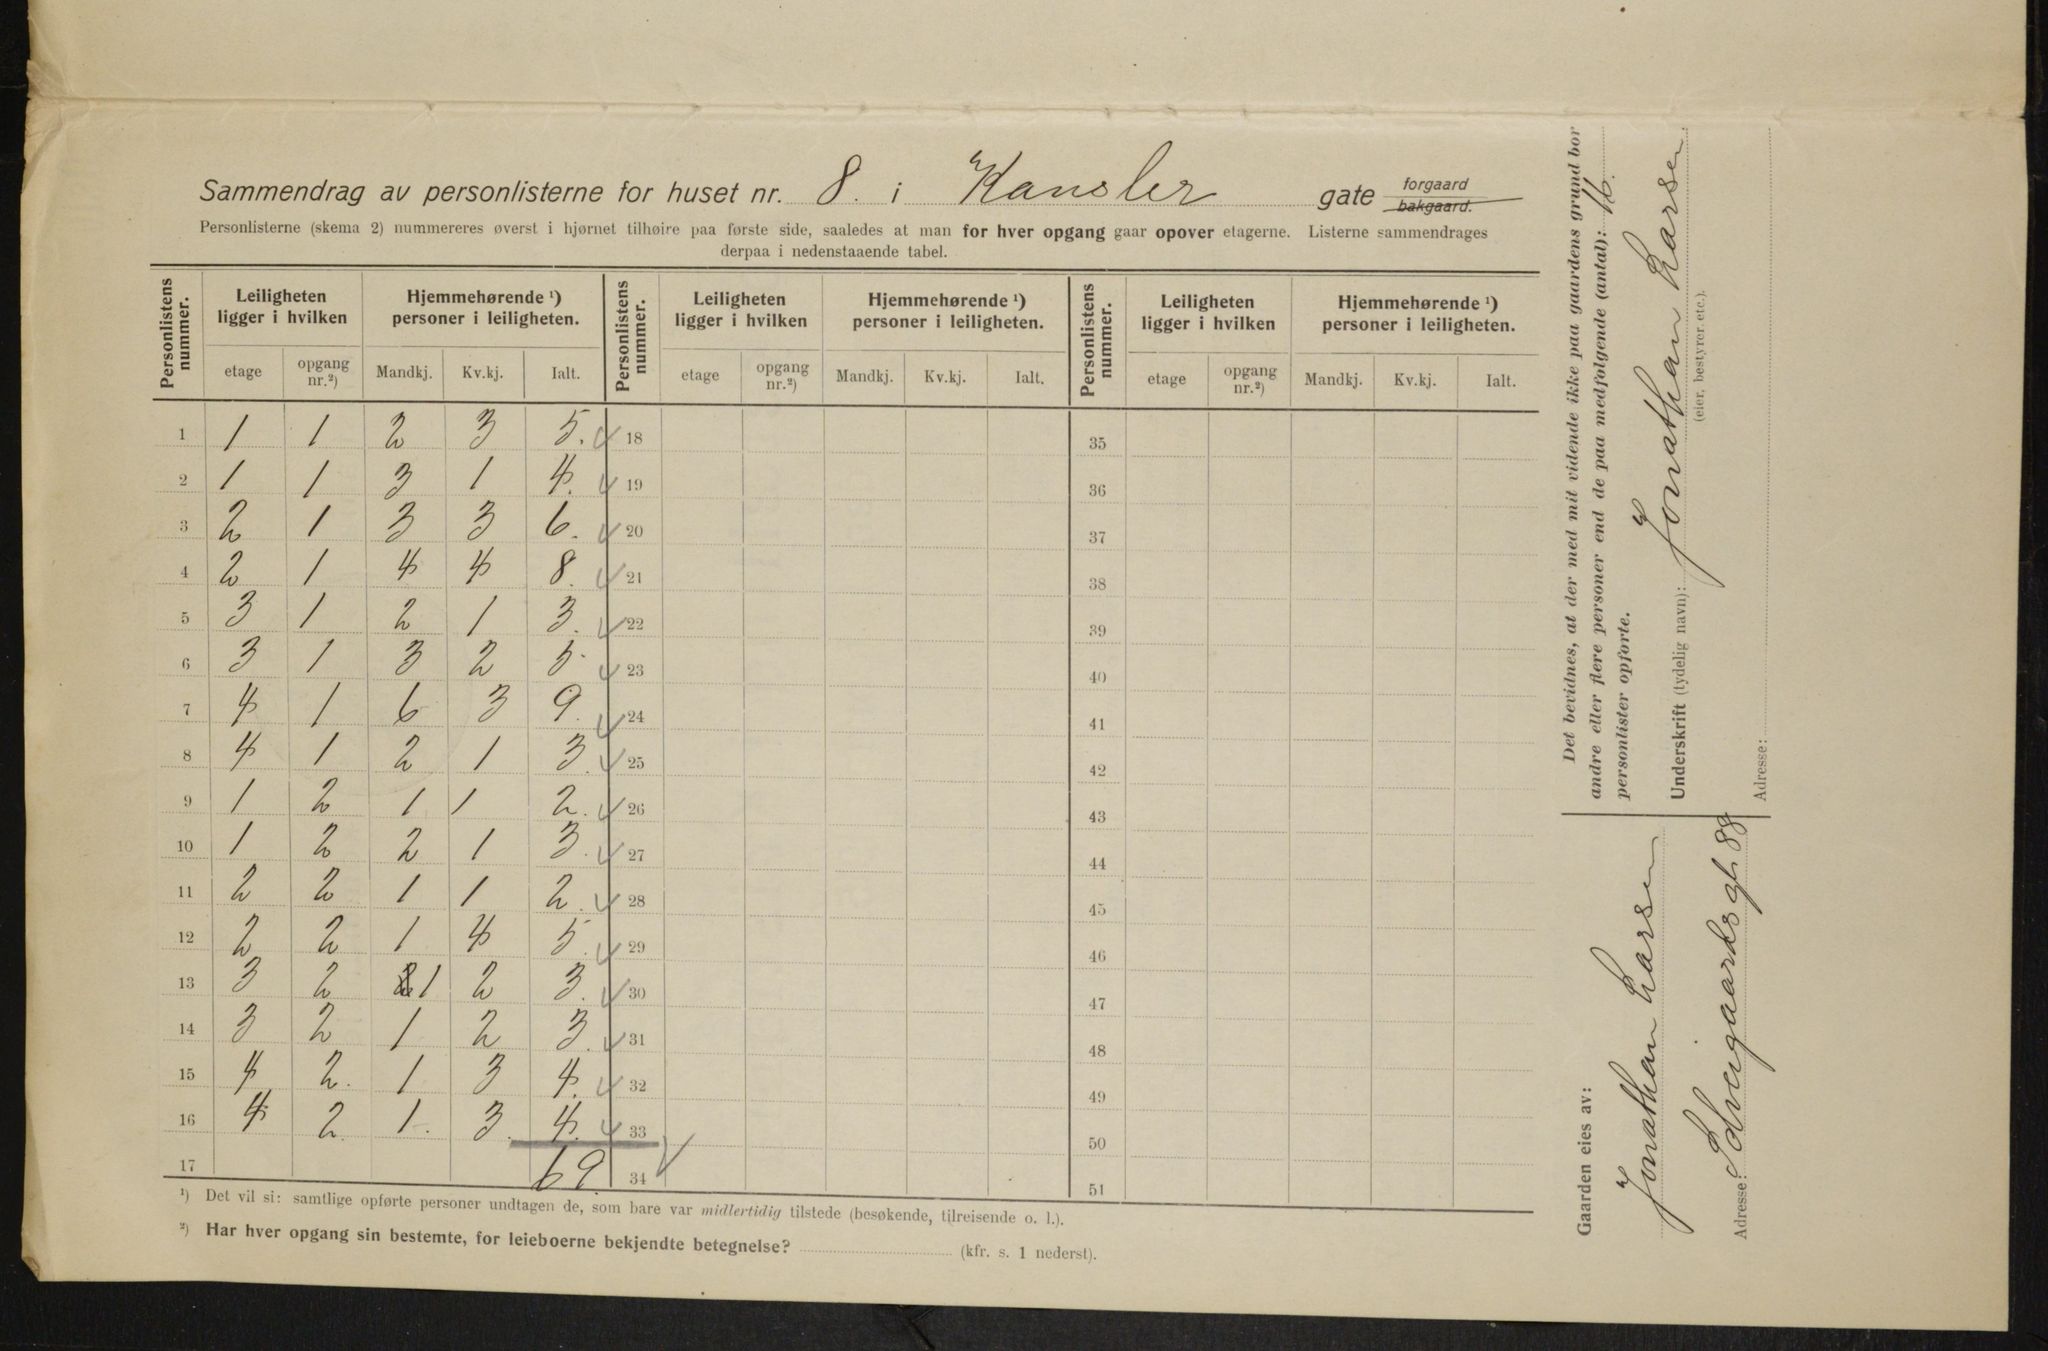 Sammendrag av personlisterne for huset nr. 8. i Kansler gate forgaard
bakgaard.
Personlisterne (skema 2) nummereres øverst i hjørnet tilhøire paa første side, saaledes at man for hver opgang gaar opover etagerne. Listerne sammendrages
derpaa i nedenstaaende tabel.
Personlistens nummer. Leiligheten ligger i hvilken Hjemmehørende ¹) personer i leiligheten. Personlistens nummer. Leiligheten ligger i hvilken Hjemmehørende ¹) personer i leiligheten. Personlistens nummer. Leiligheten ligger i hvilken Hjemmehørende ¹) personer i leiligheten.
etage opgang nr.²) Mandkj. Kv.kj. Ialt. etage opgang nr.²) Mandkj. Kv.kj. Ialt. etage opgang nr.²) Mandkj. Kv.kj. Ialt.
1 1 1 2 3 5. 18 35
2 1 1 3 1 4. 19 36
3 2 1 3 3 6. 20 37
4 2 1 4 4 8. 21 38
5 3 1 2 1 3. 22 39
6 3 1 3 2 5. 23 40
7 4 1 6 3 9. 24 41
8 4 1 2 1 3. 25 42
9 1 2 1 1 2. 26 43
10 1 2 2 1 3. 27 44
11 2 2 1 1 2. 28 45
12 2 2 1 4 5. 29 46
13 3 2 1 2 3. 30 47
14 3 2 1 2 3. 31 48
15 4 2. 1 3 4. 32 49
16 4 2. 1. 3. 4. 33 50
17 69. 34 51
¹) Det vil si: samtlige opførte personer undtagen de, som bare var midlertidig tilstede (besøkende, tilreisende o. l.).
²) Har hver opgang sin bestemte, for leieboerne bekjendte betegnelse? (kfr. s. 1 nederst).
Det bevidnes, at der med mit vidende ikke paa gaardens grund bor
andre eller flere personer end de paa medfølgende (antal): 16.
personlister opførte.
Underskrift (tydelig navn): Jonathan Larsen
(eier, bestyrer. etc.).
Adresse:
Gaarden eies av:
Jonathan Larsen
Adresse: Edvigaardsgt. 88